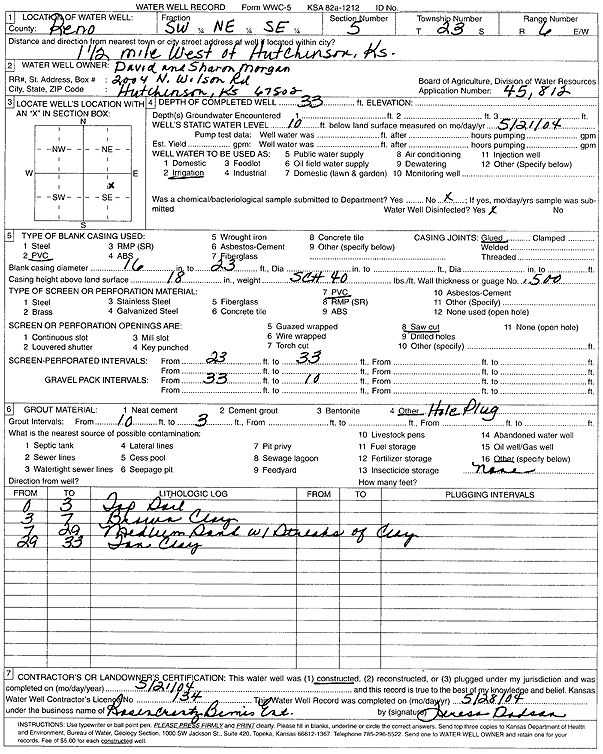 WATER WELL RECORD Form WWC-5 KSA 82a-1212 ID No.
1 LOCATION OF WATER WELL: Fraction Section Number Township Number Range Number
County: Reno SW ¼ NE ¼ SE ¼ 5 T 23 S R 6 E/W
Distance and direction from nearest town or city street address of well if located within city?
1 1/2 mile West of Hutchinson, Ks.
2 WATER WELL OWNER: David and Sharon Morgan
RR#, St. Address, Box # : 2004 N. Wilson Rd Board of Agriculture, Division of Water Resources
City, State, ZIP Code : Hutchinson, Ks 67502 Application Number: 45,812
3 LOCATE WELL'S LOCATION WITH AN "X" IN SECTION BOX:
N
NW NE
W E
SW X SE
S
4 DEPTH OF COMPLETED WELL 33 ft. ELEVATION:
Depth(s) Groundwater Encountered 1 ft. 2 ft. 3 ft.
WELL'S STATIC WATER LEVEL 10 ft. below land surface measured on mo/day/yr 5/21/04
Pump test data: Well water was ft. after hours pumping gpm
Est. Yield gpm: Well water was ft. after hours pumping gpm
WELL WATER TO BE USED AS: 5 Public water supply 8 Air conditioning 11 Injection well
1 Domestic 3 Feedlot 6 Oil field water supply 9 Dewatering 12 Other (Specify below)
2 Irrigation 4 Industrial 7 Domestic (lawn & garden) 10 Monitoring well
Was a chemical/bacteriological sample submitted to Department? Yes No X ; If yes, mo/day/yrs sample was sub-
mitted Water Well Disinfected? Yes X No
5 TYPE OF BLANK CASING USED: 5 Wrought iron 8 Concrete tile CASING JOINTS: Glued Clamped
1 Steel 3 RMP (SR) 6 Asbestos-Cement 9 Other (specify below) Welded
2 PVC 4 ABS 7 Fiberglass Threaded
Blank casing diameter 16 in. to 23 ft., Dia in. to ft., Dia in. to ft.
Casing height above land surface 18 in., weight SCH 40 lbs./ft. Wall thickness or guage No. .500
TYPE OF SCREEN OR PERFORATION MATERIAL: 7 PVC 10 Asbestos-Cement
1 Steel 3 Stainless Steel 5 Fiberglass 8 RMP (SR) 11 Other (Specify)
2 Brass 4 Galvanized Steel 6 Concrete tile 9 ABS 12 None used (open hole)
SCREEN OR PERFORATION OPENINGS ARE: 5 Guazed wrapped 8 Saw cut 11 None (open hole)
1 Continuous slot 3 Mill slot 6 Wire wrapped 9 Drilled holes
2 Louvered shutter 4 Key punched 7 Torch cut 10 Other (specify) ft.
SCREEN-PERFORATED INTERVALS: From 23 ft. to 33 ft., From ft. to ft.
From ft. to ft., From ft. to ft.
GRAVEL PACK INTERVALS: From 33 ft. to 10 ft., From ft. to ft.
From ft. to ft., From ft. to ft.
6 GROUT MATERIAL: 1 Neat cement 2 Cement grout 3 Bentonite 4 Other Hole Plug
Grout Intervals: From 10 ft. to 3 ft., From ft. to ft., From ft. to ft.
What is the nearest source of possible contamination: 10 Livestock pens 14 Abandoned water well
1 Septic tank 4 Lateral lines 7 Pit privy 11 Fuel storage 15 Oil well/Gas well
2 Sewer lines 5 Cess pool 8 Sewage lagoon 12 Fertilizer storage 16 Other (specify below)
3 Watertight sewer lines 6 Seepage pit 9 Feedyard 13 Insecticide storage None
Direction from well? How many feet?
FROM TO LITHOLOGIC LOG FROM TO PLUGGING INTERVALS
0 3 Top Soil
3 7 Brown Clay
7 29 Medium Sand w/ Streaks of Clay
29 33 Tan Clay
7 CONTRACTOR'S OR LANDOWNER'S CERTIFICATION: This water well was (1) constructed, (2) reconstructed, or (3) plugged under my jurisdiction and was
completed on (mo/day/year) 5/21/04 and this record is true to the best of my knowledge and belief. Kansas
Water Well Contractor's Licence No 134 This Water Well Record was completed on (mo/day/yr) 5/28/04
under the business name of Rosencrantz Bemis Ent. by (signature) Teresa Dodson
INSTRUCTIONS: Use typewriter or ball point pen. PLEASE PRESS FIRMLY and PRINT clearly. Please fill in blanks, underline or circle the correct answers. Send top three copies to Kansas Department of Health
and Environment, Bureau of Water, Geology Section, 1000 SW Jackson St., Suite 420, Topeka, Kansas 66612-1367. Telephone 785-296-5522. Send one to WATER WELL OWNER and retain one for your
records. Fee of $5.00 for each constructed well.